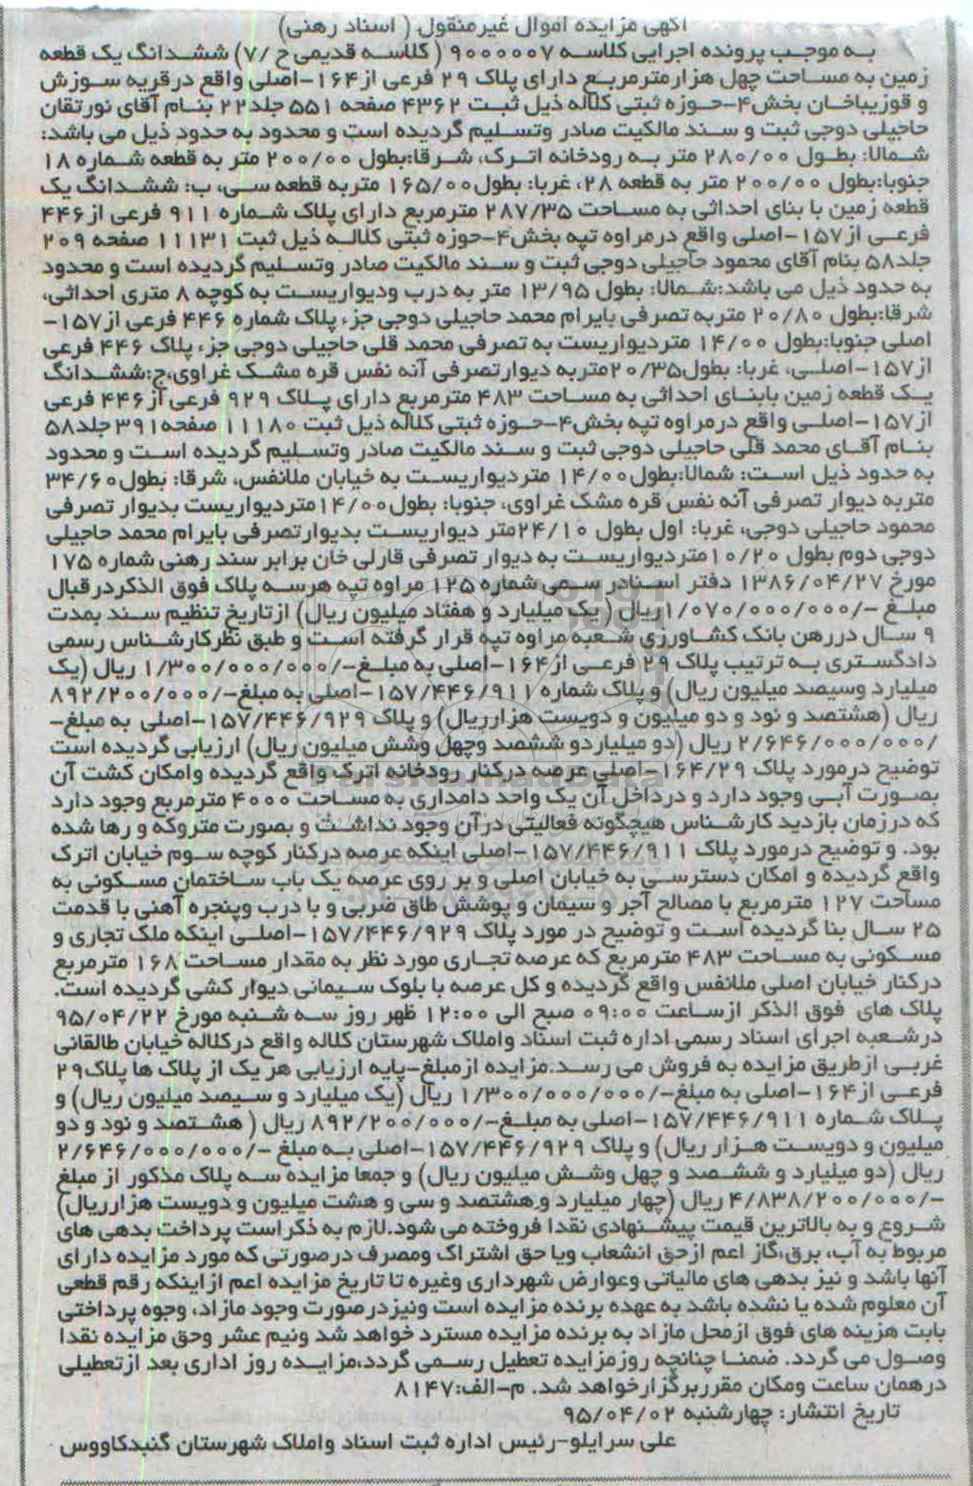 آگهی مزایده اموال غیرمنقول ( اسناد رهنی)
به موجب پرونده اجرایی کلاسه ۹۰۰۰۰۰۷ ( کلاسه قدیمی ح /۷) ششدانگ یک قطعه
زمین به مساحت چهل هزار مترمربع دارای پلاک ۲۹ فرعی از ۱۶۴-اصلی واقع در قریه سوزش
و قوزیباخان بخش۴-حوزه ثبتی کلاله ذیل ثبت ۴۳۶۲ صفحه ۵۵۱ جلد۲۲ بنام آقای نورتقان
حاجیلی دوجی ثبت و سند مالکیت صادر وتسلیم گردیده است و محدود به حدود ذیل می باشد:
شمالا: بطول ۲۸۰/۰۰ متر به رودخانه اترک، شرقا:بطول ۲۰۰/۰۰ متر به قطعه شماره ۱۸
جنوبا:بطول ۲۰۰/۰۰ متر به قطعه ۲۸، غربا: بطول۱۶۵/۰۰ متربه قطعه سی، ب: ششدانگ یک
قطعه زمین با بنای احداثی به مساحت ۲۸۷/۳۵ مترمربع دارای پلاک شماره ۹۱۱ فرعی از ۴۴۶
فرعی از ۱۵۷-اصلی واقع درمراوه تپه بخش۴-حوزه ثبتی کلاله ذیل ثبت ۱۱۱۳۱ صفحه ۲۰۹
جلد۵۸ بنام آقای محمود حاجیلی دوجی ثبت و سند مالکیت صادر وتسلیم گردیده است و محدود
به حدود ذیل می باشد:شمالا: بطول ۱۳/۹۵ متر به درب ودیواریست به کوچه ۸ متری احداثی،
شرقا:بطول ۲۰/۸۰ متربه تصرفی بایرام محمد حاجیلی دوجی جزء پلاک شماره ۴۴۶ فرعی از ۱۵۷-
اصلی جنوبا:بطول ۱۴/۰۰ متردیواریست به تصرفی محمد قلی حاجیلی دوجی جزء پلاک ۴۴۶ فرعی
از۱۵۷-اصلی، غربا: بطول۲۰/۳۵متربه دیوارتصرفی آنه نفس قره مشک غراوی،ج:ششدانگ
یک قطعه زمین بابنای احداثی به مساحت ۴۸۳ مترمربع دارای پلاک ۹۲۹ فرعی از ۴۴۶ فرعی
از۱۵۷-اصلی واقع درمراوه تپه بخش۴-حوزه ثبتی کلاله ذیل ثبت ۱۱۱۸۰ صفحه۳۹۱ جلد۵۸
بنام آقای محمد قلی حاجیلی دوجی ثبت و سند مالکیت صادر وتسلیم گردیده است و محدود
به حدود ذیل است: شمالا:بطول۱۴/۰۰ متردیواریست به خیابان ملانفس، شرقا: بطول۳۴/۶۰
متربه دیوار تصرفی آنه نفس قره مشک غراوی، جنوبا: بطول۱۴/۰۰متردیواریست بدیوار تصرفی
محمود حاجیلی دوجی، غربا: اول بطول ۲۴/۱۰متر دیواریست بدیوارتصرفی بایرام محمد حاجیلی
دوجی دوم بطول ۱۰/۲۰متردیواریست به دیوار تصرفی قارلی خان برابر سند رهنی شماره ۱۷۵
مورخ ۱۳۸۶/۰۴/۲۷ دفتر اسنادر سمی شماره ۱۲۵ مراوه تپه هرسه پلاک فوق الذکردرقبال
مبلغ -/۱/۰۷۰/۰۰۰/۰۰۰ریال ( یک میلیارد و هفتاد میلیون ریال) ازتاریخ تنظیم سند بمدت
۹ سال دررهن بانک کشاورزی شعبه مراوه تپه قرار گرفته است و طبق نظرکارشناس رسمی
دادگستری به ترتیب پلاک ۲۹ فرعی از ۱۶۴-اصلی به مبلغ-/۱/۳۰۰/۰۰۰/۰۰۰ ریال (یک
میلیارد وسیصد میلیون ریال) و پلاک شماره ۱۵۷/۴۴۶/۹۱۱-اصلی به مبلغ-/۸۹۲/۲۰۰/۰۰۰
ریال (هشتصد و نود و دو میلیون و دویست هزارریال) و پلاک ۱۵۷/۴۴۶/۹۲۹-اصلی به مبلغ-
/۲/۶۴۶/۰۰۰/۰۰۰ ریال (دو میلیاردو ششصد وچهل وشش میلیون ریال) ارزیابی گردیده است
توضیح درمورد پلاک ۱۶۴/۲۹-اصلی عرصه درکنار رودخانه اترک واقع گردیده وامکان کشت آن
بصورت آبی وجود دارد و درداخل آن یک واحد دامداری به مساحت ۴۰۰۰ مترمربع وجود دارد
که درزمان بازدید کارشناس هیچگونه فعالیتی درآن وجود نداشت و بصورت متروکه و رها شده
بود. و توضیح درمورد پلاک ۱۵۷/۴۴۶/۹۱۱-اصلی اینکه عرصه درکنار کوچه سوم خیابان اترک
واقع گردیده و امکان دسترسی به خیابان اصلی و بر روی عرصه یک باب ساختمان مسکونی به
مساحت ۱۲۷ مترمربع با مصالح آجر و سیمان و پوشش طاق ضربی و با درب وپنجره آهنی با قدمت
۲۵ سال بنا گردیده است و توضیح در مورد پلاک ۱۵۷/۴۴۶/۹۲۹-اصلی اینکه ملک تجاری و
مسکونی به مساحت ۴۸۳ مترمربع که عرصه تجاری مورد نظر به مقدار مساحت ۱۶۸ مترمربع
درکنار خیابان اصلی ملانفس واقع گردیده و کل عرصه با بلوک سیمانی دیوار کشی گردیده است.
پلاک های فوق الذکر ازساعت ۰۹:۰۰ صبح الی ۱۲:۰۰ ظهر روز سه شنبه مورخ ۹۵/۰۴/۲۲
درشعبه اجرای اسناد رسمی اداره ثبت اسناد واملاک شهرستان کلاله واقع درکلاله خیابان طالقانی
غربی ازطریق مزایده به فروش می رسد.مزایده ازمبلغ-پایه ارزیابی هر یک از پلاک ها پلاک۲۹
فرعی از۱۶۴-اصلی به مبلغ-/۱/۳۰۰/۰۰۰/۰۰۰ ریال (یک میلیارد و سیصد میلیون ریال) و
پلاک شماره ۱۵۷/۴۴۶/۹۱۱-اصلی به مبلغ-/۸۹۲/۲۰۰/۰۰۰ ریال ( هشتصد و نود و دو
میلیون و دویست هزار ریال) و پلاک ۱۵۷/۴۴۶/۹۲۹-اصلی به مبلغ -/۲/۶۴۶/۰۰۰/۰۰۰
ریال (دو میلیارد و ششصد و چهل وشش میلیون ریال) و جمعا مزایده سه پلاک مذکور از مبلغ
-/۴/۸۳۸/۲۰۰/۰۰۰ ریال (چهار میلیارد و هشتصد و سی و هشت میلیون و دویست هزارریال)
شروع و به بالاترین قیمت پیشنهادی نقدا فروخته می شود.لازم به ذکر است پرداخت بدهی های
مربوط به آب، برق،گاز اعم ازحق انشعاب ویا حق اشتراک ومصرف درصورتی که مورد مزایده دارای
آنها باشد و نیز بدهی های مالیاتی وعوارض شهرداری وغیره تا تاریخ مزایده اعم ازاینکه رقم قطعی
آن معلوم شده یا نشده باشد به عهده برنده مزایده است ونیزدرصورت وجود مازاد، وجوه پرداختی
بابت هزینه های فوق ازمحل مازاد به برنده مزایده مسترد خواهد شد ونیم عشر وحق مزایده نقدا
وصول می گردد. ضمنا چنانچه روزمزایده تعطیل رسمی گردد،مزایده روز اداری بعد ازتعطیلی
درهمان ساعت ومکان مقرربرگزارخواهد شد. م-الف:۸۱۴۷
تاریخ انتشار: چهارشنبه ۹۵/۰۴/۰۲
علی سرایلو-رئیس اداره ثبت اسناد واملاک شهرستان گنبدکاووس